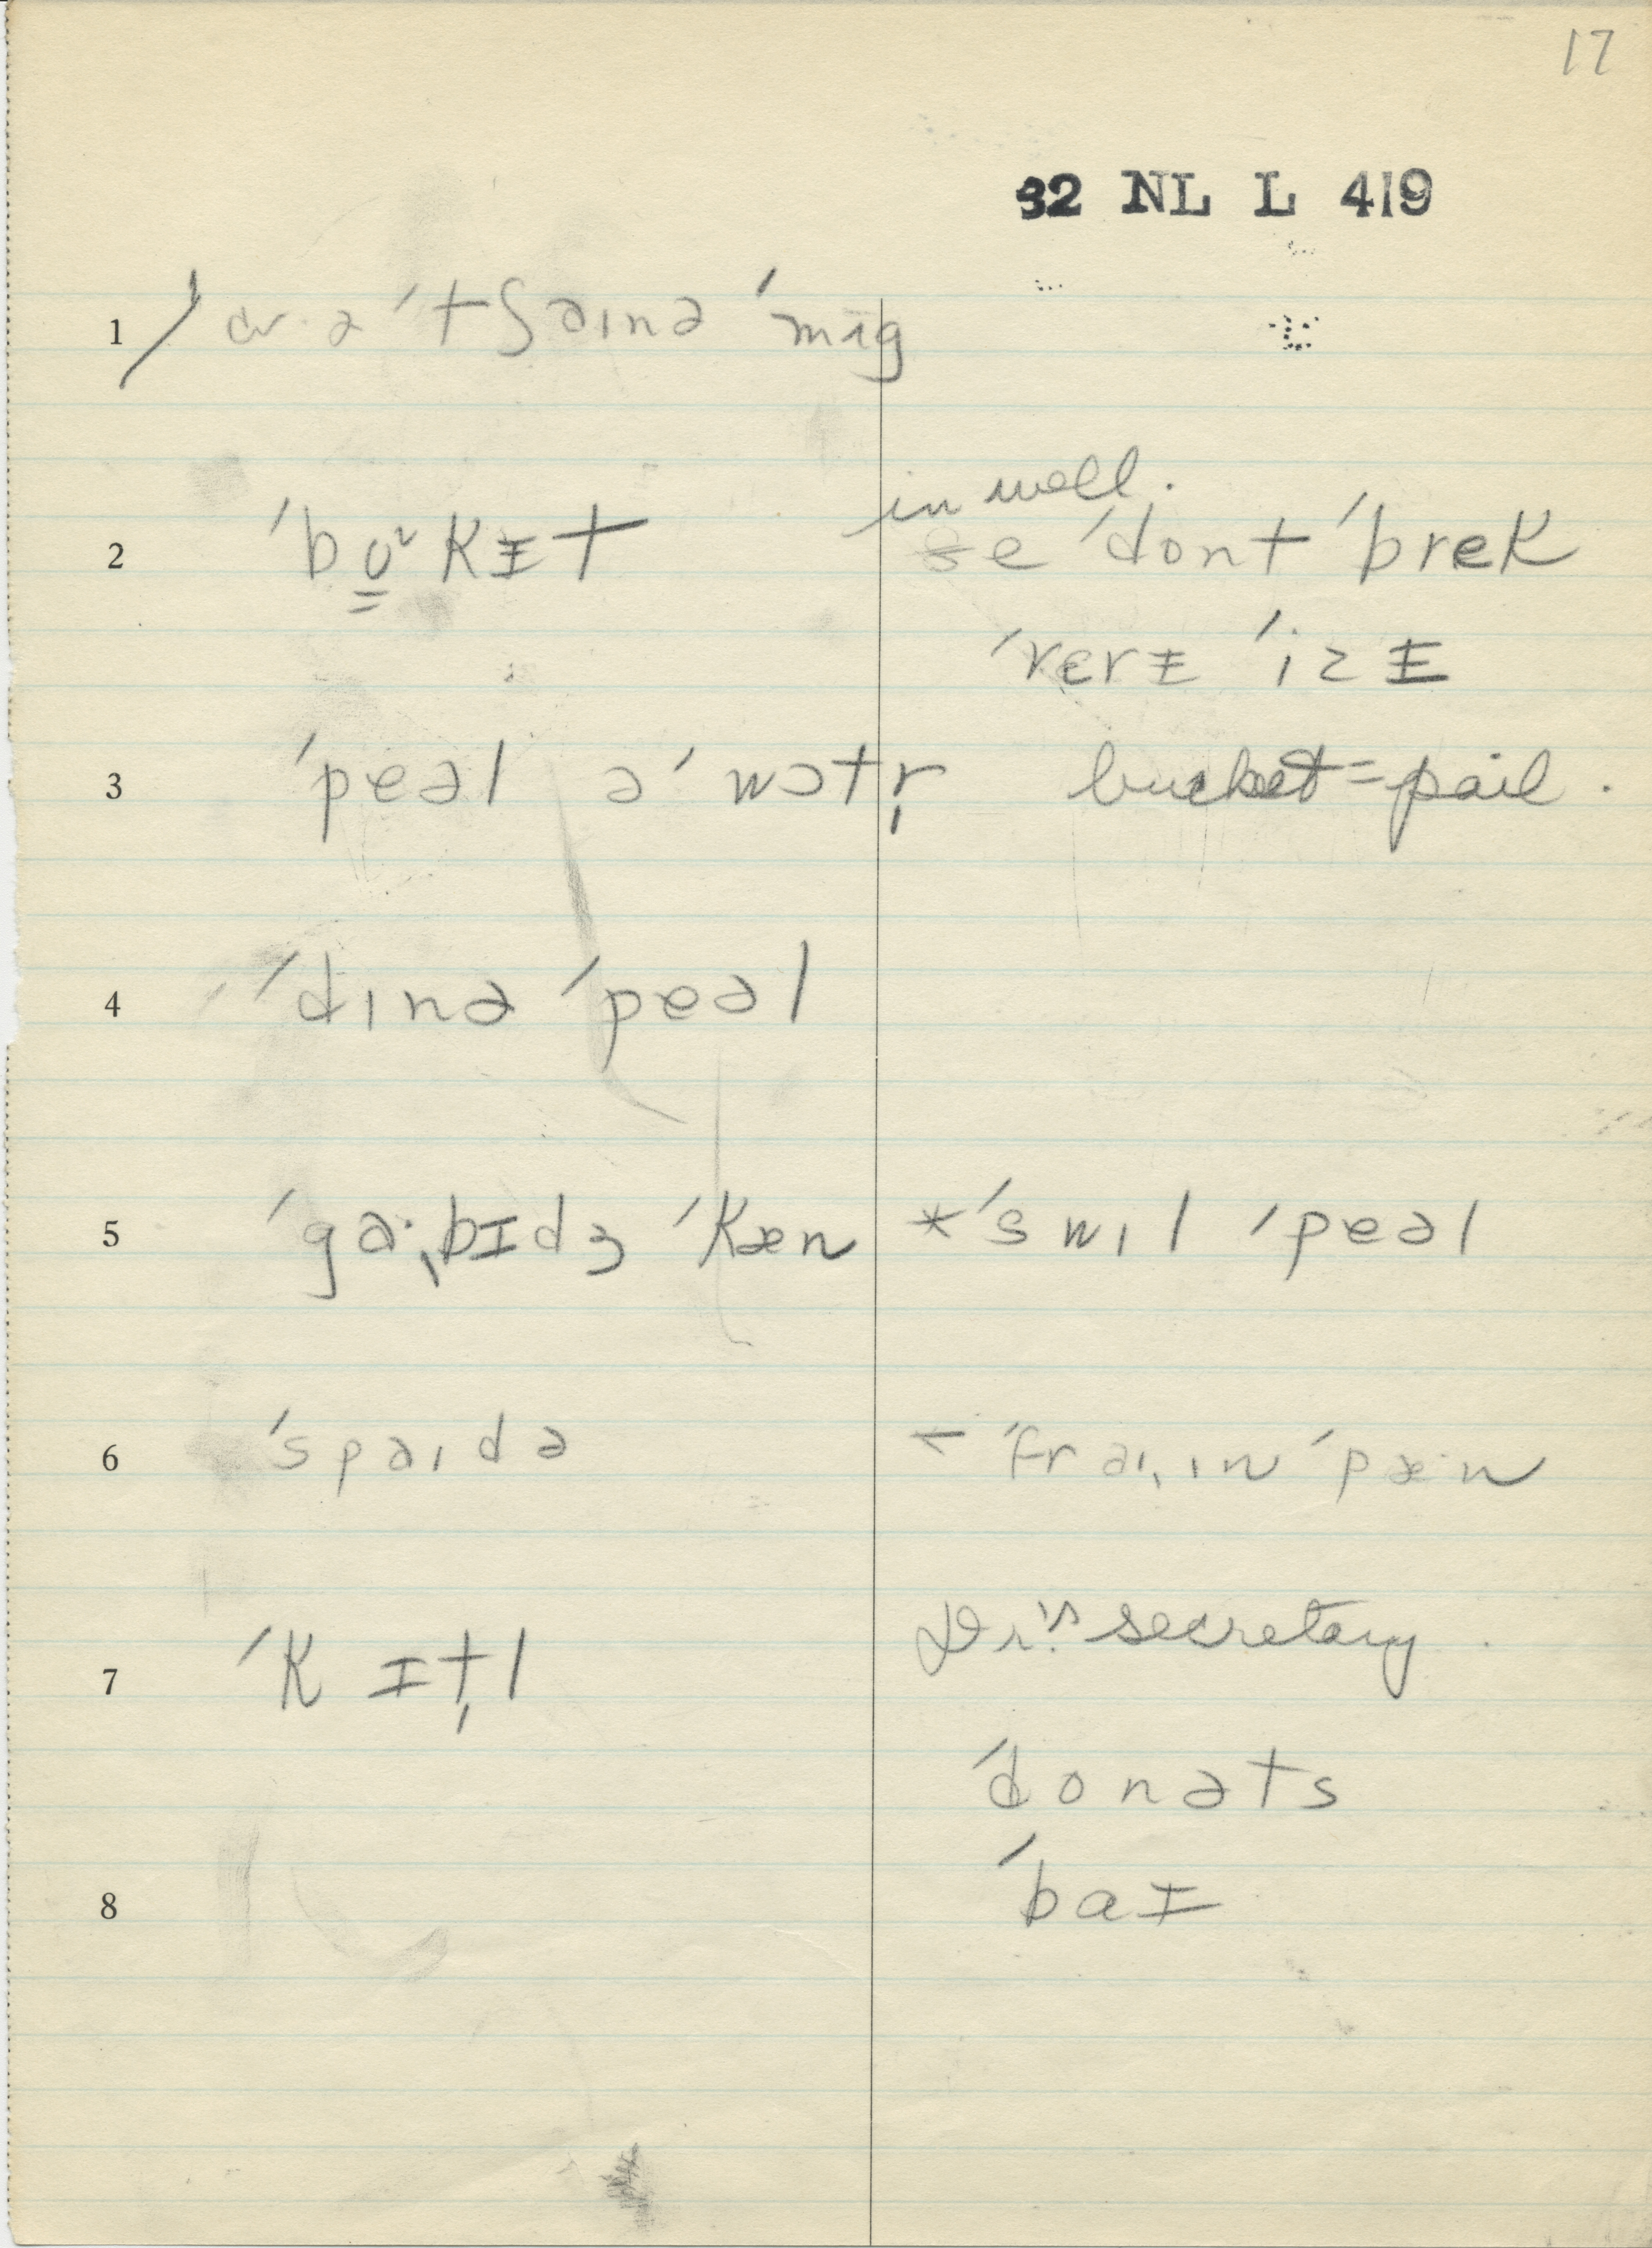 17
32 NL L 419
1 ə ˈtʃaɪnə ˈmʌg
in well.
2 ˈbʊ̳ˠkɨt ðe ˈdont ˈbrek
ˈvɛrɨ ˈizɨ
3 ˈpeəl əˈ wɔtr̩ bucket = pail.
4 ˈdɪnə ˈpeəl
5 ˈgaˑˌbɨdʒ ˈkæn *ˈswɪl ˈpeəl
6 ˈspaɪdə ← ˈfraɪˌɪn ˈpæˑn
7 ˈkɨtl̩ Dr.'s secretary.
ˈdonəts
8 ˈbaɨ